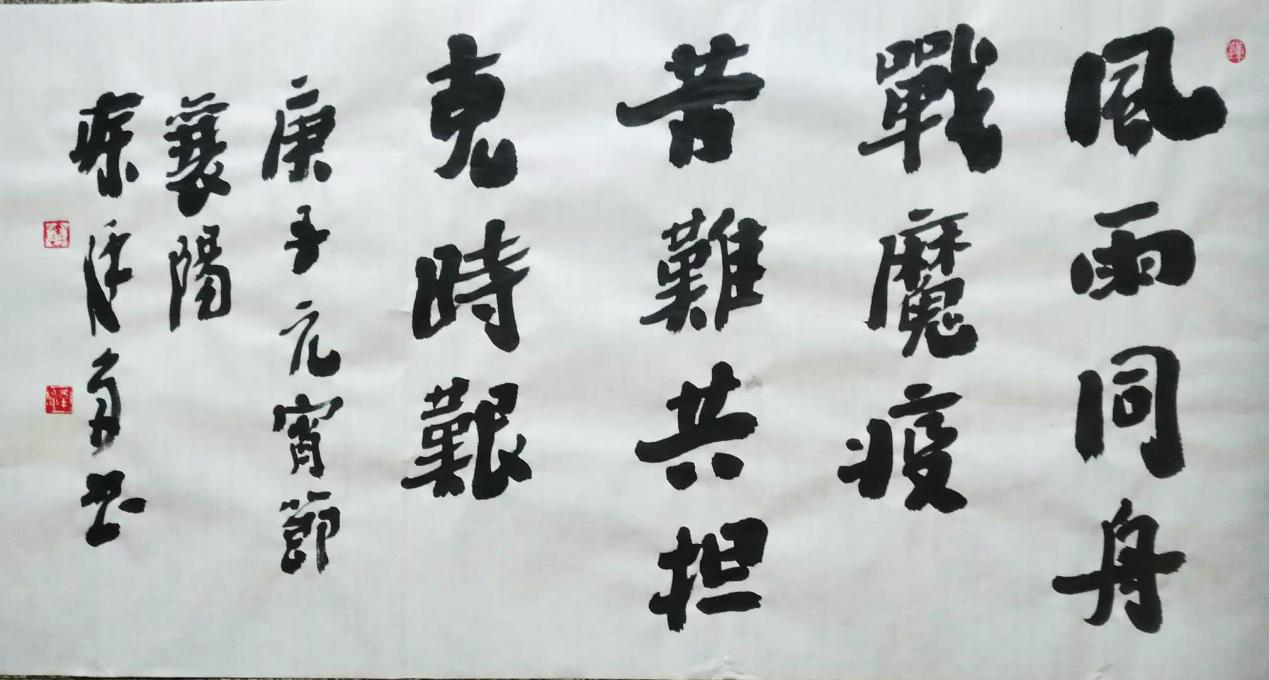 風雨同舟
戰魔疫
苦難共担
克時艱
庚子元宵節
襄陽
書